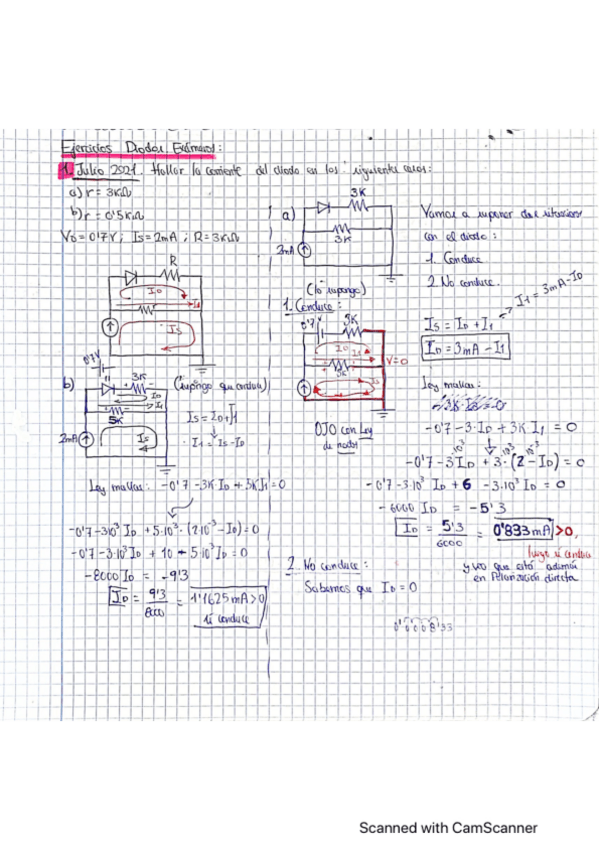 Ejercicios Diodos Exámenes:
1. Julio 2021. Hallar la corriente del diodo en los siguientes casos:
a) r = 3KΩ
b) r = 0'5KΩ
V₀ = 0'7V ; Is = 2mA ; R = 3KΩ
R
I_D
I₁
Is
a)
3K
3K
2mA
Vamos a suponer dos situaciones
con el diodo:
1. Conduce
2. No conduce.
(lo supongo)
1. Conduce:
0'7
3K
I_D
I₁
3K
Is
V=0
OJO con Ley
de nodos
I₁ = 3mA - I_D
Is = I_D + I₁
I_D = 3mA - I₁
Ley mallas:
-0'7 - 3·I_D + 3K I₁ = 0
-0'7 - 3·10³ I_D + 3·10³ (2·10⁻³ - I_D) = 0
-0'7 - 3·10³ I_D + 6 - 3·10³ I_D = 0
-6000 I_D = -5'3
I_D = 5'3/6000 = 0'833mA >0,
luego si conduce
y veo que está además
en Polarización directa
b)
0'7V
3K
I_D
I₁
5K
2mA
Is
(Supongo que conduce)
Is = I_D + I₁
I₁ = Is - I_D
Ley mallas: -0'7 - 3K I_D + 5K I₁ = 0
-0'7 - 3·10³ I_D + 5·10³·(2·10⁻³ - I_D) = 0
-0'7 - 3·10³ I_D + 10 - 5·10³ I_D = 0
-8000 I_D = -9'3
I_D = 9'3/8000 = 1'1625mA >0
si conduce
2. No conduce:
Sabemos que I_D = 0
0'000833
Scanned with CamScanner